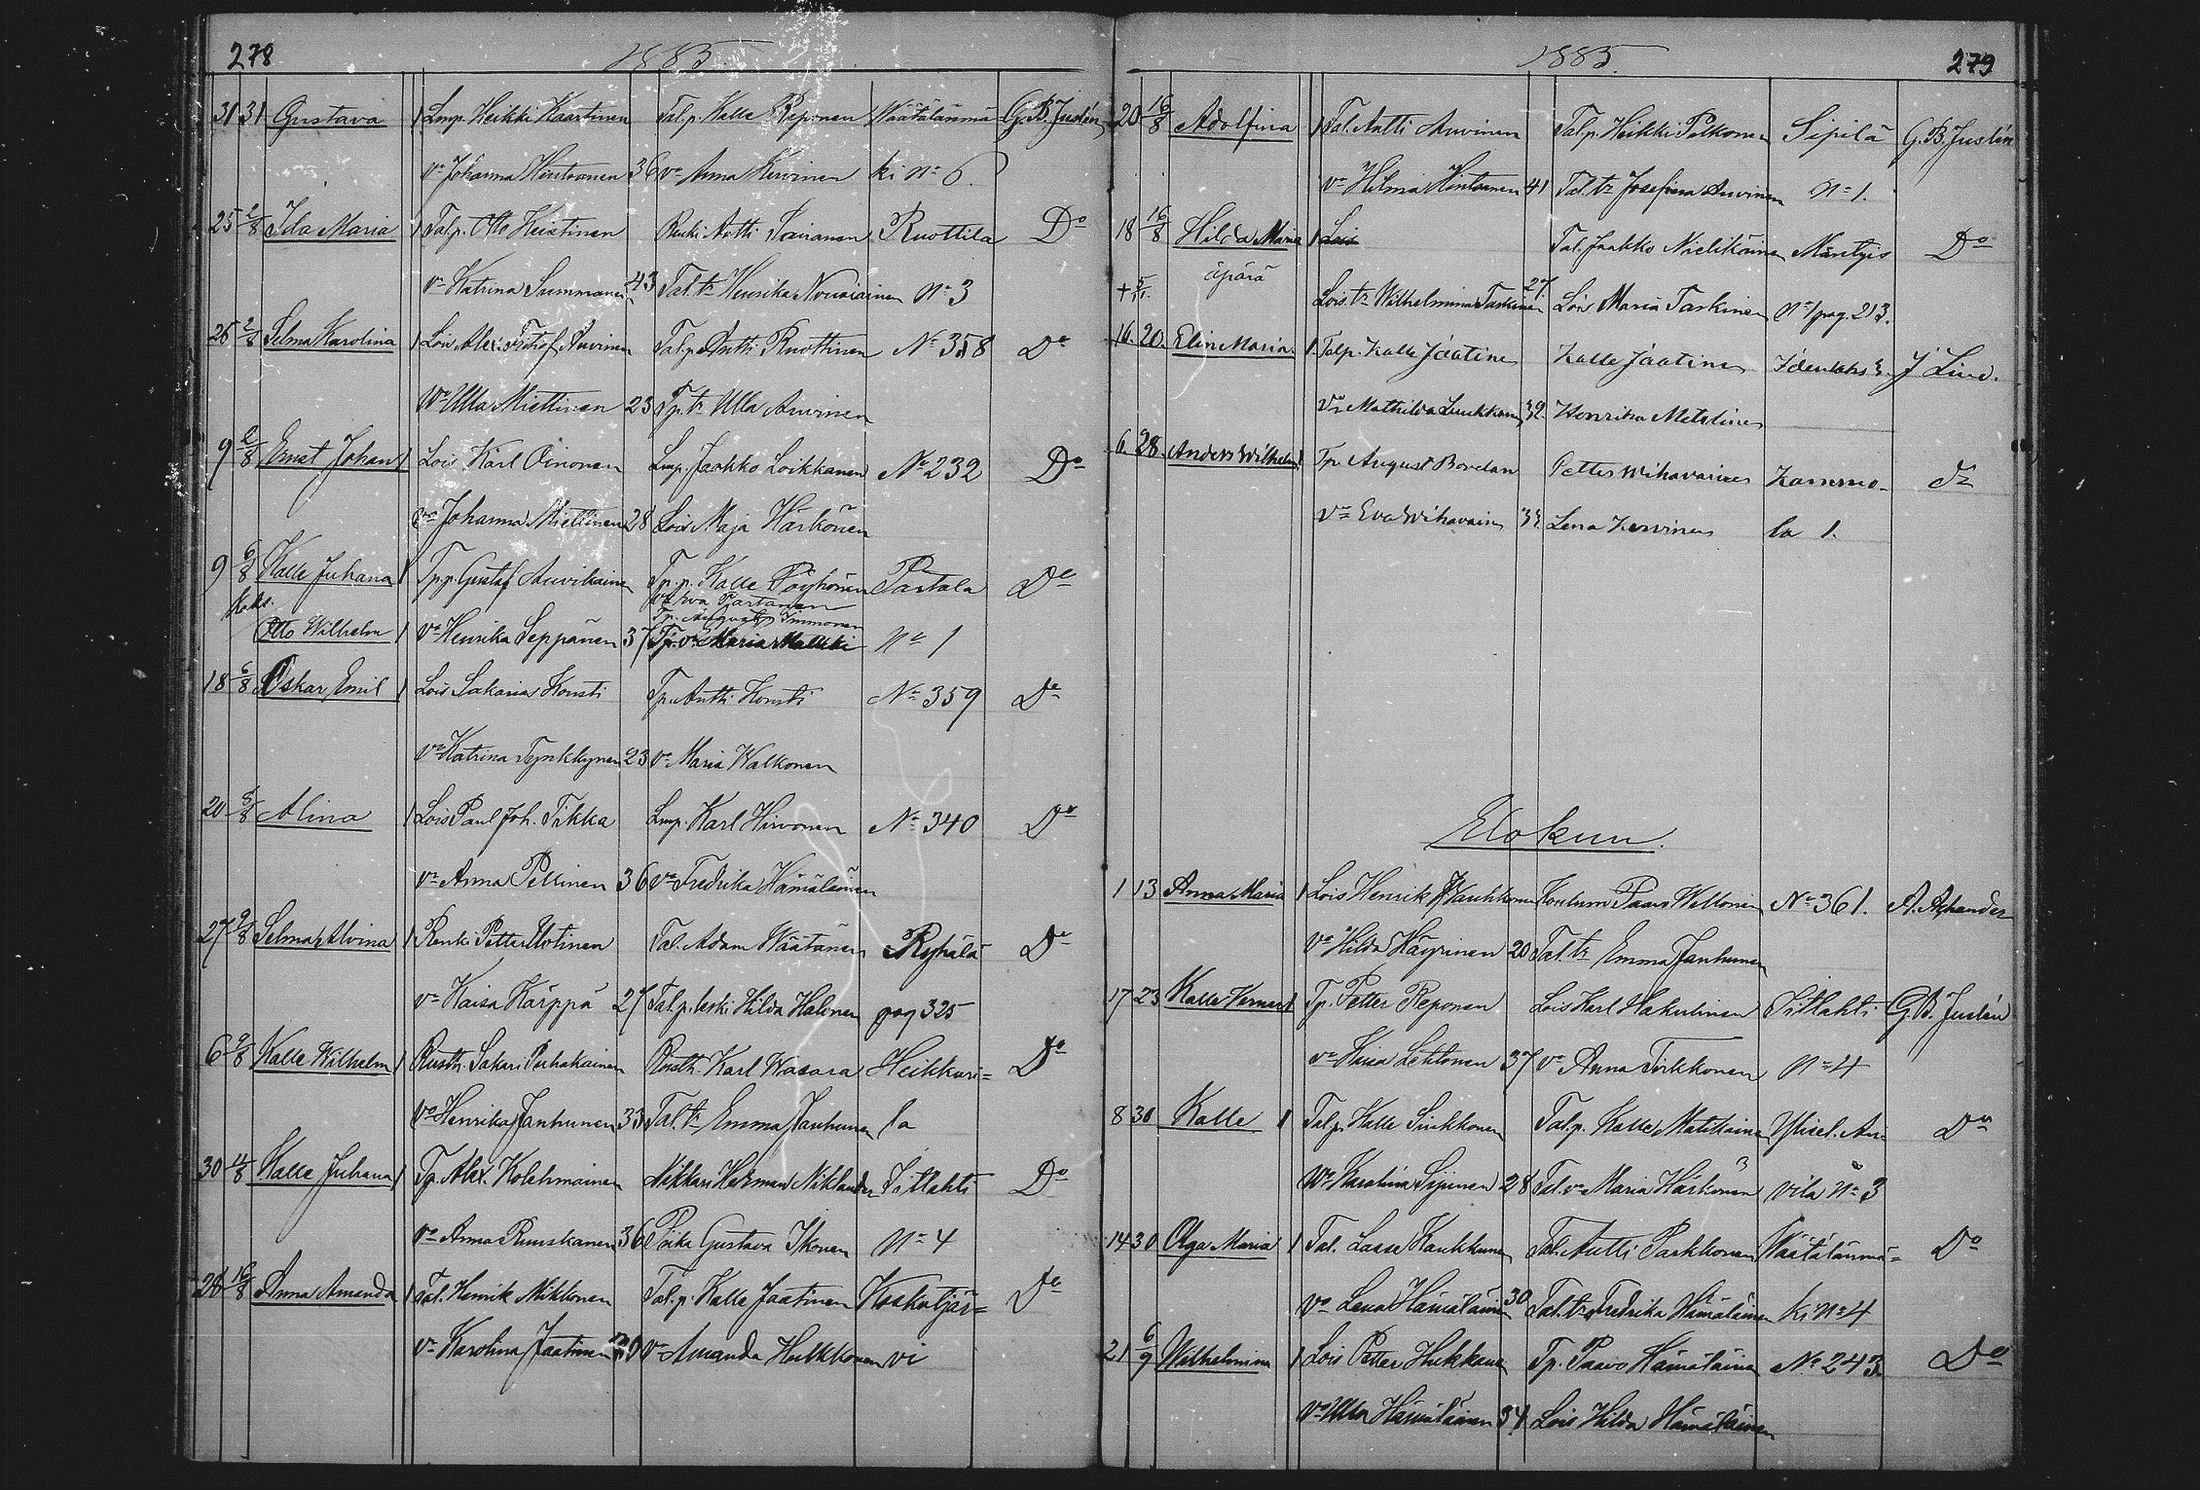 278
1885.
31 31 Gustava 1 Lmp. Heikki Kaartinen Tal.p. Kalle Reponen Väätälänmä G.B. Juslén
vo Johanna Hintvanen 36 vo Anna Hirvinen ki No 6
25 2/8 Ida Maria 1 Tal.p. Otto Heistinen Renki Antti Tavianen Ruottila Do
vo Katrina Summanen 43 Tal.tr Henrika Nousiainen No 3
26 2/8 Selma Karolina 1 Lois Alex. Auvinen Tal.p. Antti Ruottinen No 358 Do
vo Ulla Miettinen 23 Tp. tr Ulla Auvinen
9 2/8 Ernst Johan 1 Lois Karl Oinonen Lmp. Jaakko Loikkanen No 232 Do
vo Johanna Miettinen 28 Lois Maja Härkönen
9 6/8 Kalle Juhana 1 Tp.p. Gustaf Auvikainen Tp.p. Kalle Pöyhönen Partala Do
vo Eva Partanen
kaks. Tp. August Immonen
Otto Wilhelm 1 vo Henrika Seppänen 37 Tp. vo Maria Malkki No 1
18 6/8 Oskar Emil 1 Lois Sakarias Konsti Tp. Antti Konsti No 359 Do
vo Katrina Tynkkynen 23 vo Maria Walkonen
20 8/8 Alina 1 Lois Paul Joh. Tikka Lmp. Karl Hirvonen No 340 Do
vo Anna Pellinen 36 vo Fredrika Hämäläinen
27 9/8 Selma Alvina 1 Renki Petter Utotinen Tal. Adam Väätänen Ryhälä Do
vo Kaisa Kärppä 27 Tal.p. leski Hilda Halonen pag 325
6 9/8 Kalle Wilhelm 1 Rusth. Sakari Puhakainen Rusth. Karl Wasara Heikkuri= Do
vo Henrika Janhunen 33 Tal. tr Emma Janhunen la
30 11/8 Kalle Juhana 1 Tp. Alex. Kolehmainen Nikkari Herman Niklander Litlahti Do
vo Anna Ruuskanen 36 Piika Gustava Ikonen No 4
16/8 Anna Amanda 1 Tal. Henrik Mikkonen Tal.p. Kalle Jaatinen Koskutjär= Do
vo Karolina Jaatinen vo Amanda Heikkonen vi
1885.
279
20 16/8 Adolfina 1 Tal. Antti Auvinen Tal.p. Heikki Pelkonen Sipilä G.B. Juslén
vo Helmi Hintsanen 41 Tal. tr Josefina Auvinen No 1.
18 16/8 Hilda Maria 1 Lois Tal. Jaakko Nielikäinen Mäntyis Do
äpärä
Lois tr Wilhelmina Taskinen 27. Lois Maria Taskinen No 1 pag. 213.
16. 20. Elin Maria. 1. Talp. Kalle Jäätinen Kalle Jaatinen J Lind.
vo Mathilda Luukkonen 32. Henrika Metelinen
6. 28. Anders Wilhelm 1 Tp August Bovelan Petter Wihavainen Kammo- do
vo Eva Wihavainen 33. Lena Kervinen la 1.
Elokuu.
1 13 Anna Maria 1 Lois Henrik Kaukkonen Paavo Weltonen No 361. A. Ahlander
vo Hilda Häyrinen 20 Tal. tr Emma Janhunen
17 23 Kalle Verner 1 Tp. Petter Reponen Lois Karl Hakulinen Litlahti G.B. Juslén
vo Kaisa Lehtonen 37 vo Anna Tirkkonen No 4
8 30 Kalle 1 Tal.p. Kalle Sinkkonen Tal.p. Kalle Matikainen Do
vo Karolina Sipinen 28 Tal. vo Maria Härkönen vila No 3
14 30 Olga Maria 1 Tal. Lasse Kaukkunen Tal. Antti Parkkonen Väätälänmä= Do
vo Lena Hämäläinen 30 Tal. tr Fredrika Hämäläinen ki No 4
21 6/9 Wilhelmina 1 Lois Petter Hukkanen Tp. Paavo Hämäläinen No 243. Do
vo Ulla Hämäläinen 34 Lois Hilda Hämäläinen